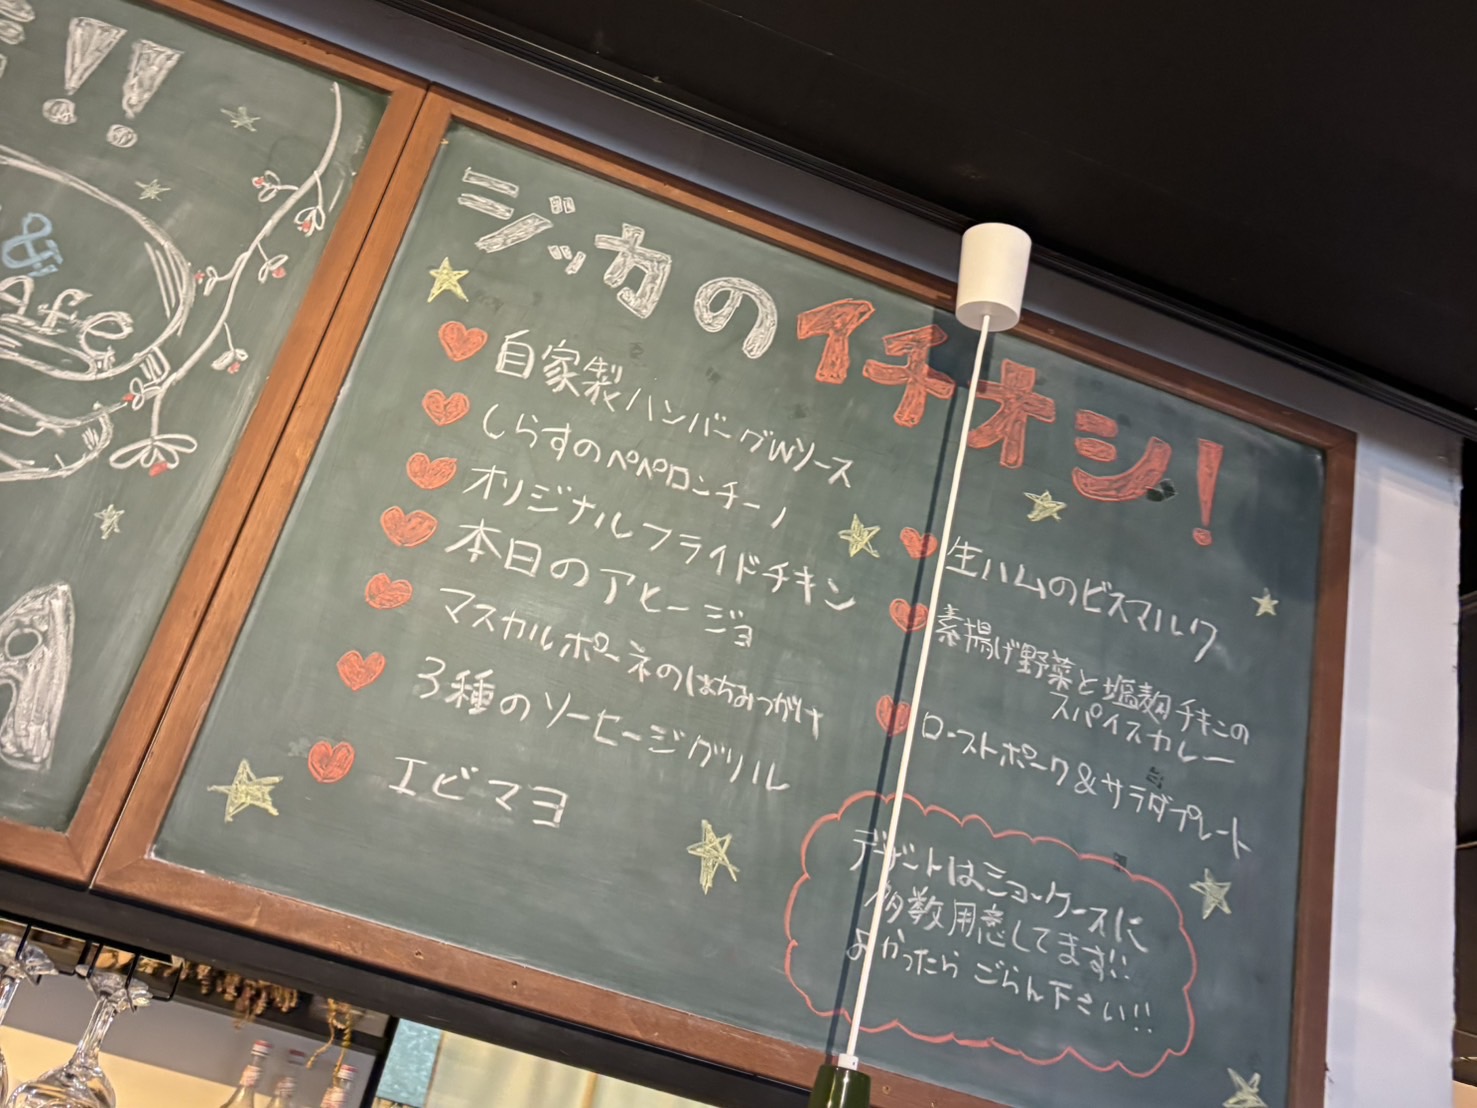 !!
afe
ジッカのイチオシ!
自家製ハンバーグWソース
しらすのペペロンチーノ
オリジナルフライドチキン
本日のアヒージョ
マスカルポーネのはちみつがけ
3種のソーセージグリル
エビマヨ
生ハムのビスマルク
素揚げ野菜と塩麹チキンの
スパイスカレー
ローストポーク&サラダプレート
デザートはショーケースに
多数用意してます!!
よかったらごらん下さい!!